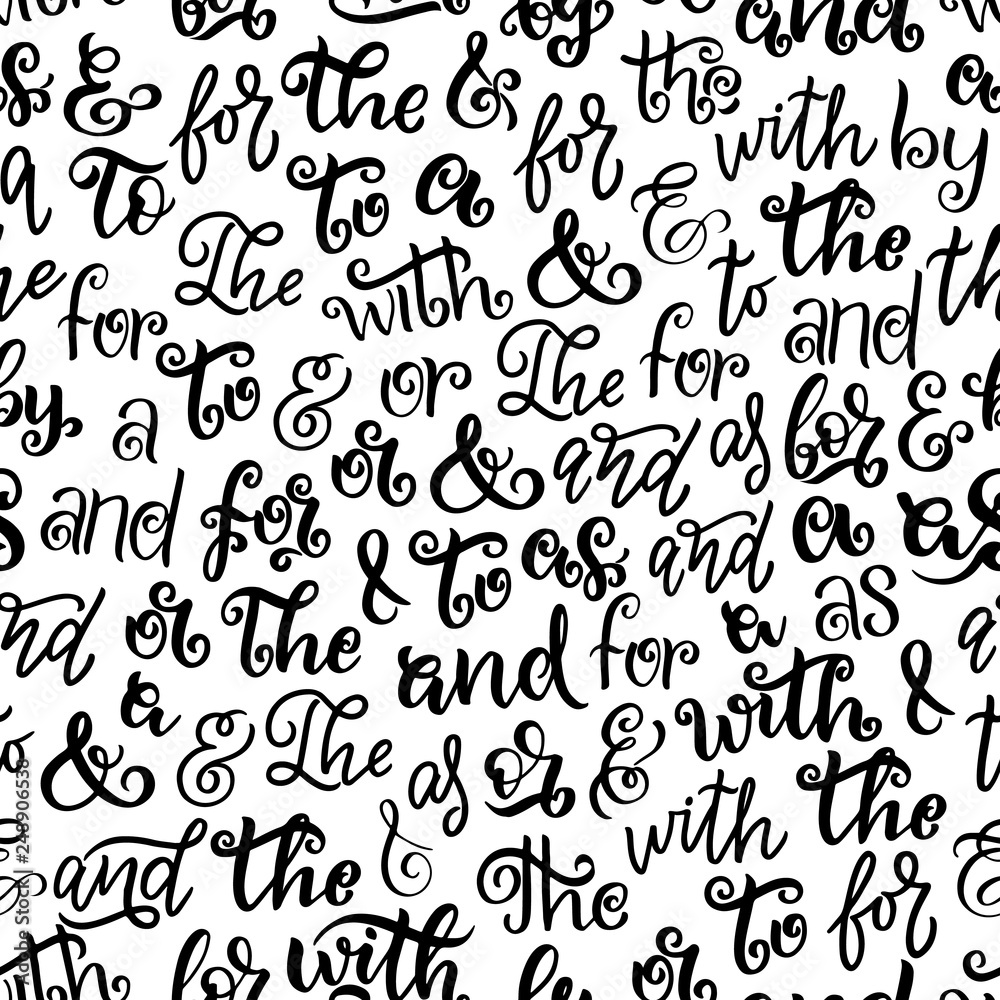 for by and
& for the & for the with by a
a To to a & the
The with & to the th
for to & or The for and
by a to & or & and as for &
and for & to as and a as
nd or The and for a as a
a & & The as or & with &
and the & The with the
with to for &
for with by or and
Adobe Stock | 248906538